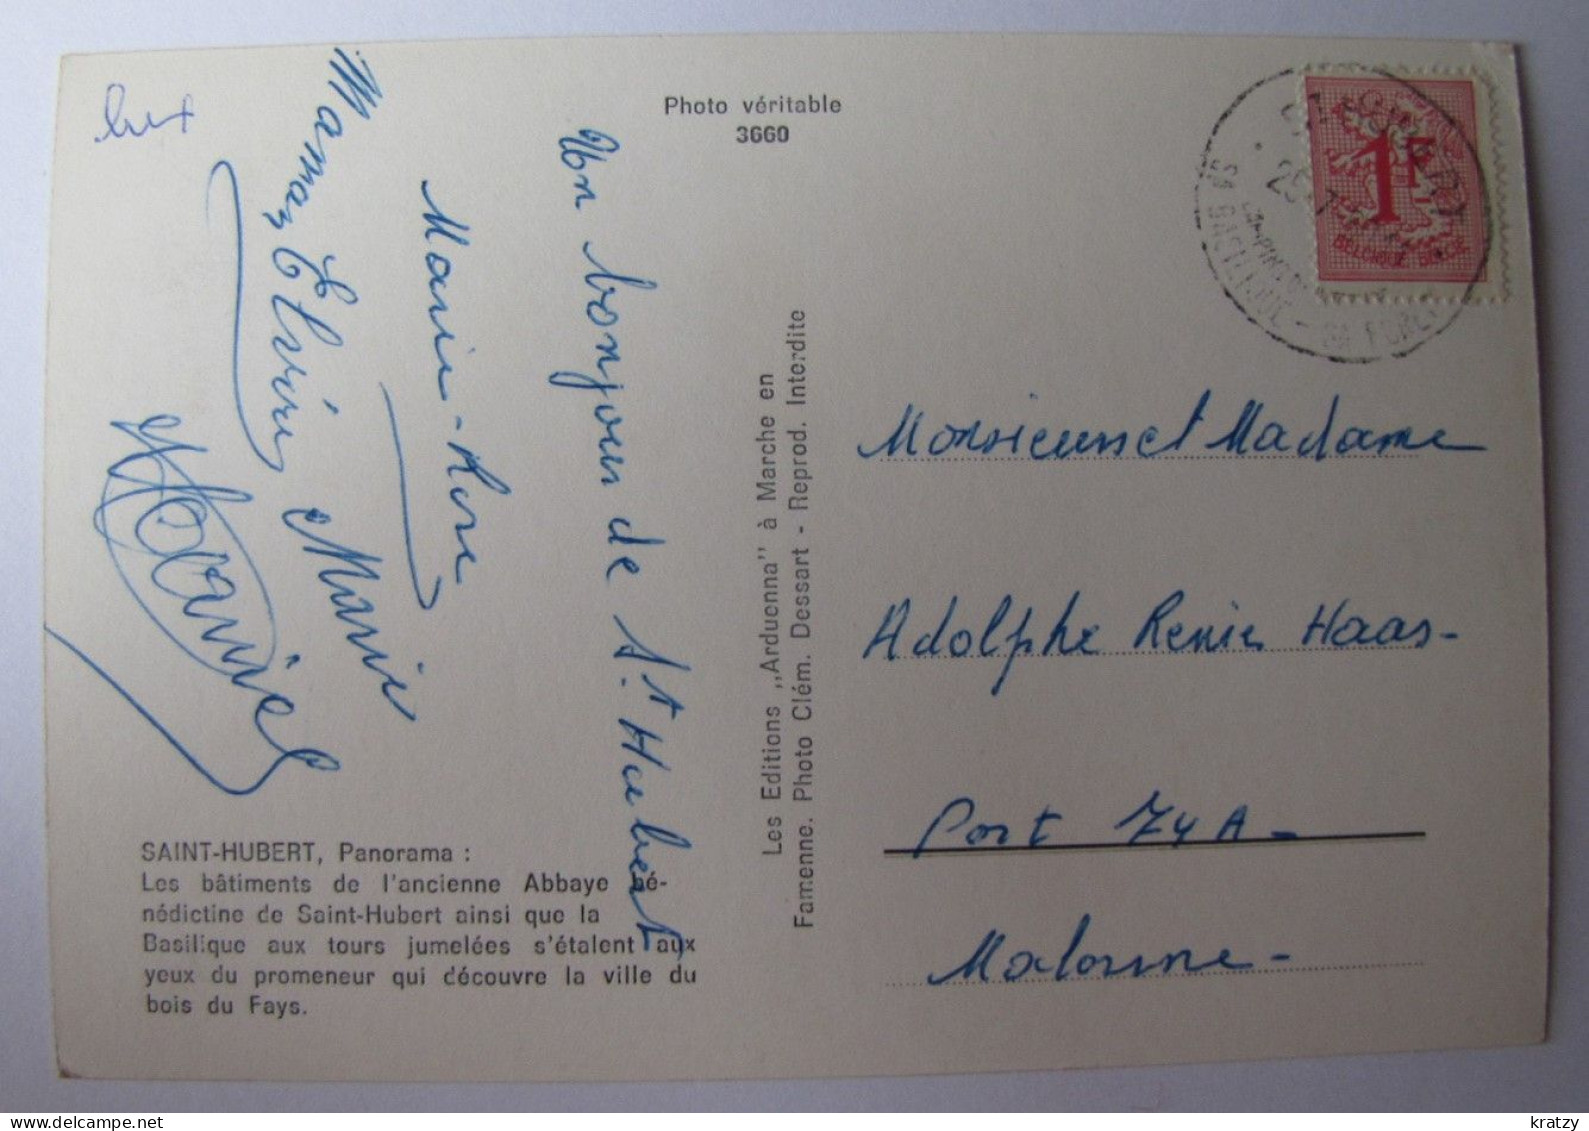 Photo véritable
3660
Un bonjour de St. Hubert
Marie-Rose
Maman Elvire Marie
lux
SAINT-HUBERT, Panorama :
Les bâtiments de l'ancienne Abbaye bé-
nédictine de Saint-Hubert ainsi que la
Basilique aux tours jumelées s'étalent aux
yeux du promeneur qui découvre la ville du
bois du Fays.
Les Editions ,,Arduenna" à Marche en
Famenne. Photo Clém. Dessart - Reprod. Interdite
1F
BELGIQUE BELGIE
SA BASILIQUE - SA FORET
Monsieur et Madame
Adolphe Renier Haas-
Port 74A-
Malonne-
www.delcampe.net
kratzy